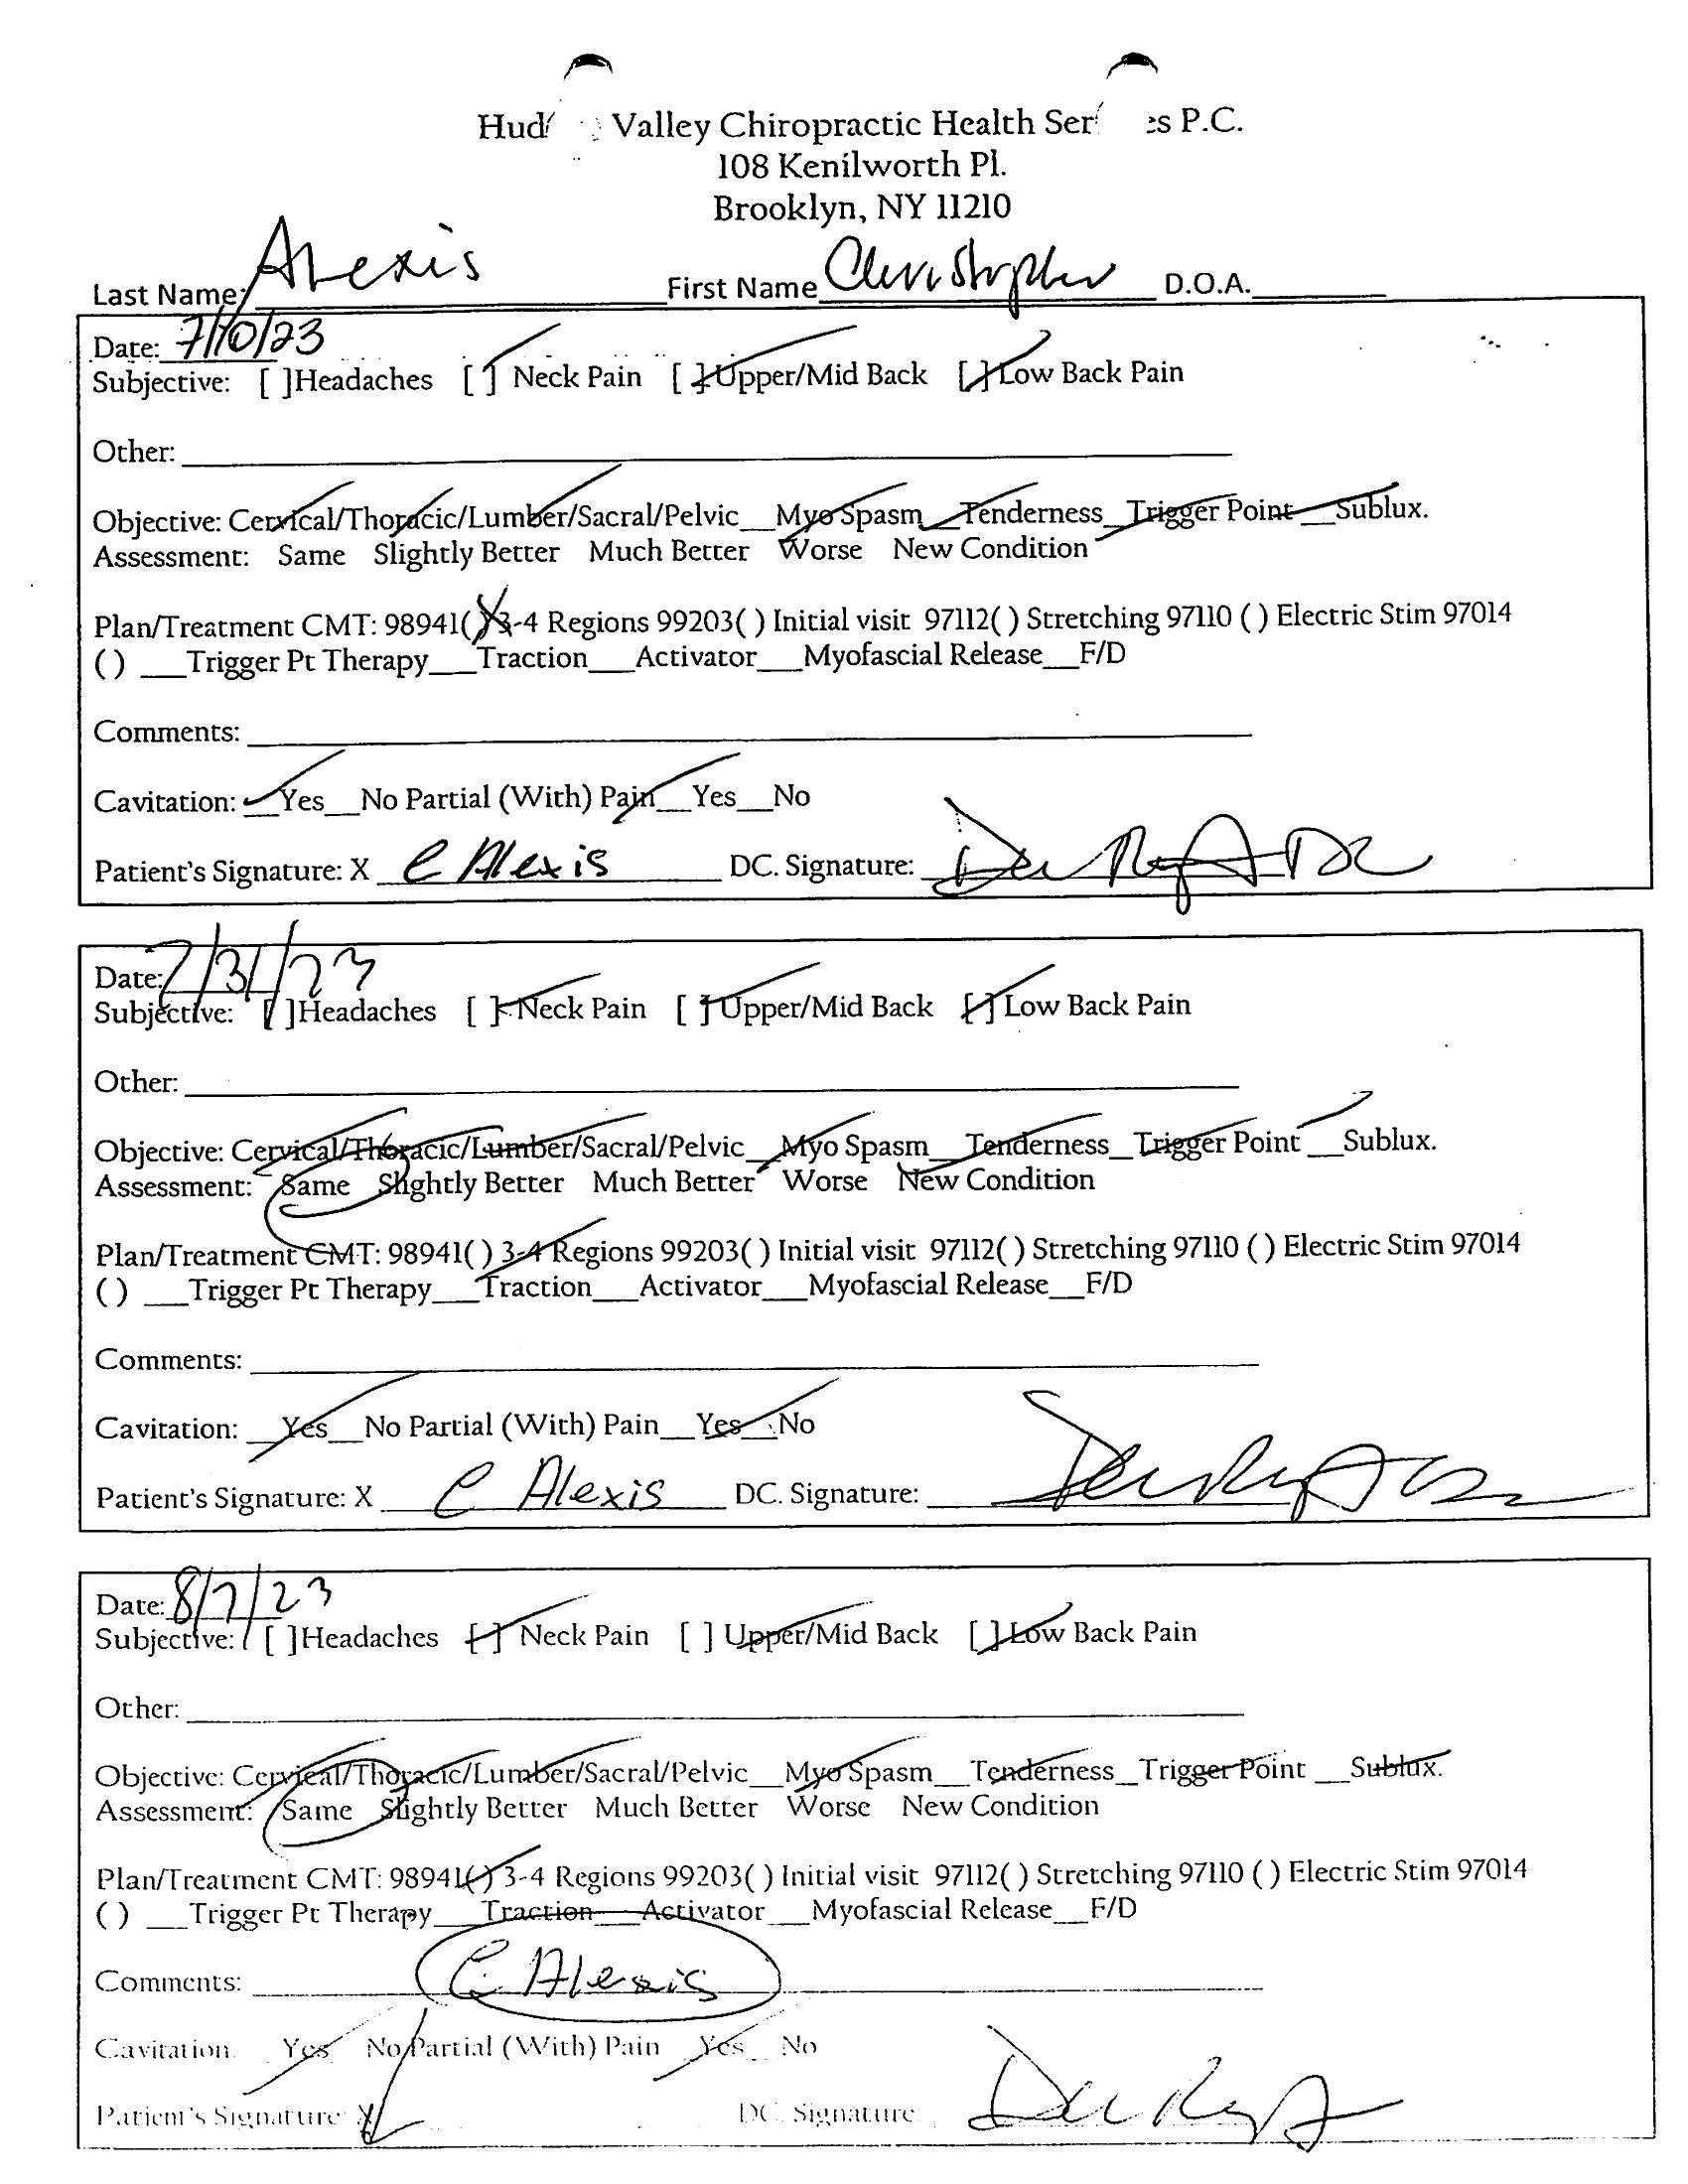 Hud Valley Chiropractic Health Ser es P.C.
108 Kenilworth Pl.
Brooklyn, NY 11210
Last Name: Alexis First Name Christopher D.O.A.
Date: 7/10/23
Subjective: [ ]Headaches [ ] Neck Pain [ ] Upper/Mid Back [ ] Low Back Pain
Other:
Objective: Cervical/Thoracic/Lumber/Sacral/Pelvic__Myo Spasm__Tenderness_Trigger Point __Sublux.
Assessment: Same Slightly Better Much Better Worse New Condition
Plan/Treatment CMT: 98941( ) 3-4 Regions 99203( ) Initial visit 97112( ) Stretching 97110 ( ) Electric Stim 97014
( ) __Trigger Pt Therapy__Traction__Activator__Myofascial Release__F/D
Comments:
Cavitation: __Yes__No Partial (With) Pain__Yes__No
Patient's Signature: X C Alexis DC. Signature:
Date: 7/31/23
Subjective: [ ]Headaches [ ] Neck Pain [ ] Upper/Mid Back [ ] Low Back Pain
Other:
Objective: Cervical/Thoracic/Lumber/Sacral/Pelvic__Myo Spasm__Tenderness_Trigger Point __Sublux.
Assessment: Same Slightly Better Much Better Worse New Condition
Plan/Treatment CMT: 98941( ) 3-4 Regions 99203( ) Initial visit 97112( ) Stretching 97110 ( ) Electric Stim 97014
( ) __Trigger Pt Therapy__Traction__Activator__Myofascial Release__F/D
Comments:
Cavitation: __Yes__No Partial (With) Pain__Yes__No
Patient's Signature: X C Alexis DC. Signature:
Date: 8/7/23
Subjective: [ ]Headaches [ ] Neck Pain [ ] Upper/Mid Back [ ] Low Back Pain
Other:
Objective: Cervical/Thoracic/Lumber/Sacral/Pelvic__Myo Spasm__Tenderness_Trigger Point __Sublux.
Assessment: Same Slightly Better Much Better Worse New Condition
Plan/Treatment CMT: 98941( ) 3-4 Regions 99203( ) Initial visit 97112( ) Stretching 97110 ( ) Electric Stim 97014
( ) __Trigger Pt Therapy__Traction__Activator__Myofascial Release__F/D
Comments: C Alexis
Cavitation. Yes No Partial (With) Pain Yes No
Patient's Signature X DC. Signature